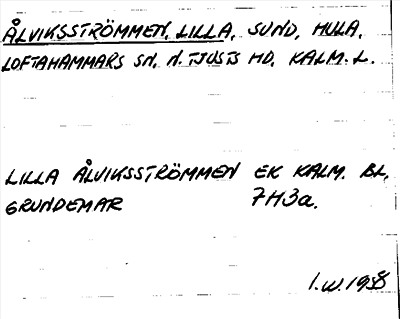 ÅLVIKSSTRÖMMEN, LILLA, SUND, HULA,
LOFTAHAMMARS SN, N. TJUSTS HD, KALM. L.
LILLA ÅLVIKSSTRÖMMEN EK KALM. BL.
GRUNDEMAR 7H3a.
I.W. 1958